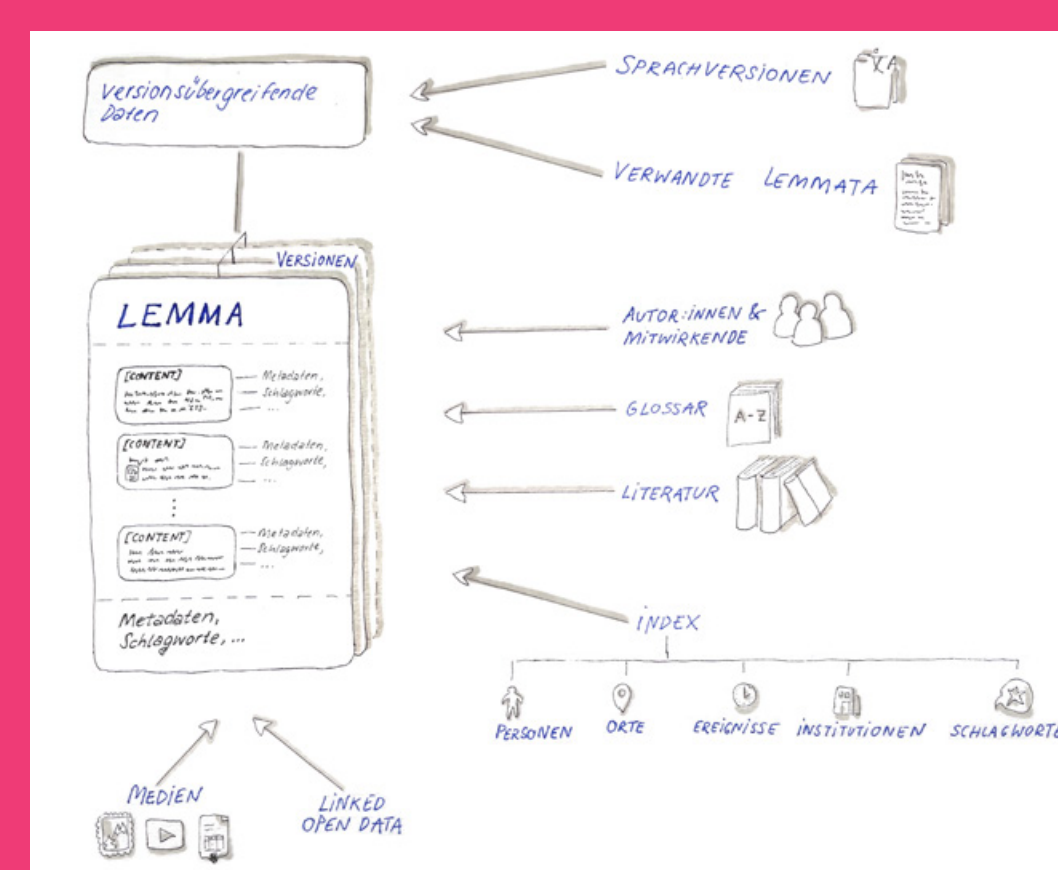 versionsübergreifende
Daten
SPRACHVERSIONEN
VERWANDTE LEMMATA
VERSIONEN
LEMMA
[CONTENT]
Metadaten,
Schlagworte,
...
[CONTENT]
Metadaten,
Schlagworte,
...
[CONTENT]
Metadaten,
Schlagworte,
...
Metadaten,
Schlagworte, ...
AUTOR:INNEN &
MITWIRKENDE
GLOSSAR
A-Z
LITERATUR
INDEX
PERSONEN
ORTE
EREIGNISSE
INSTITUTIONEN
SCHLAGWORTE
MEDIEN
LINKED
OPEN DATA